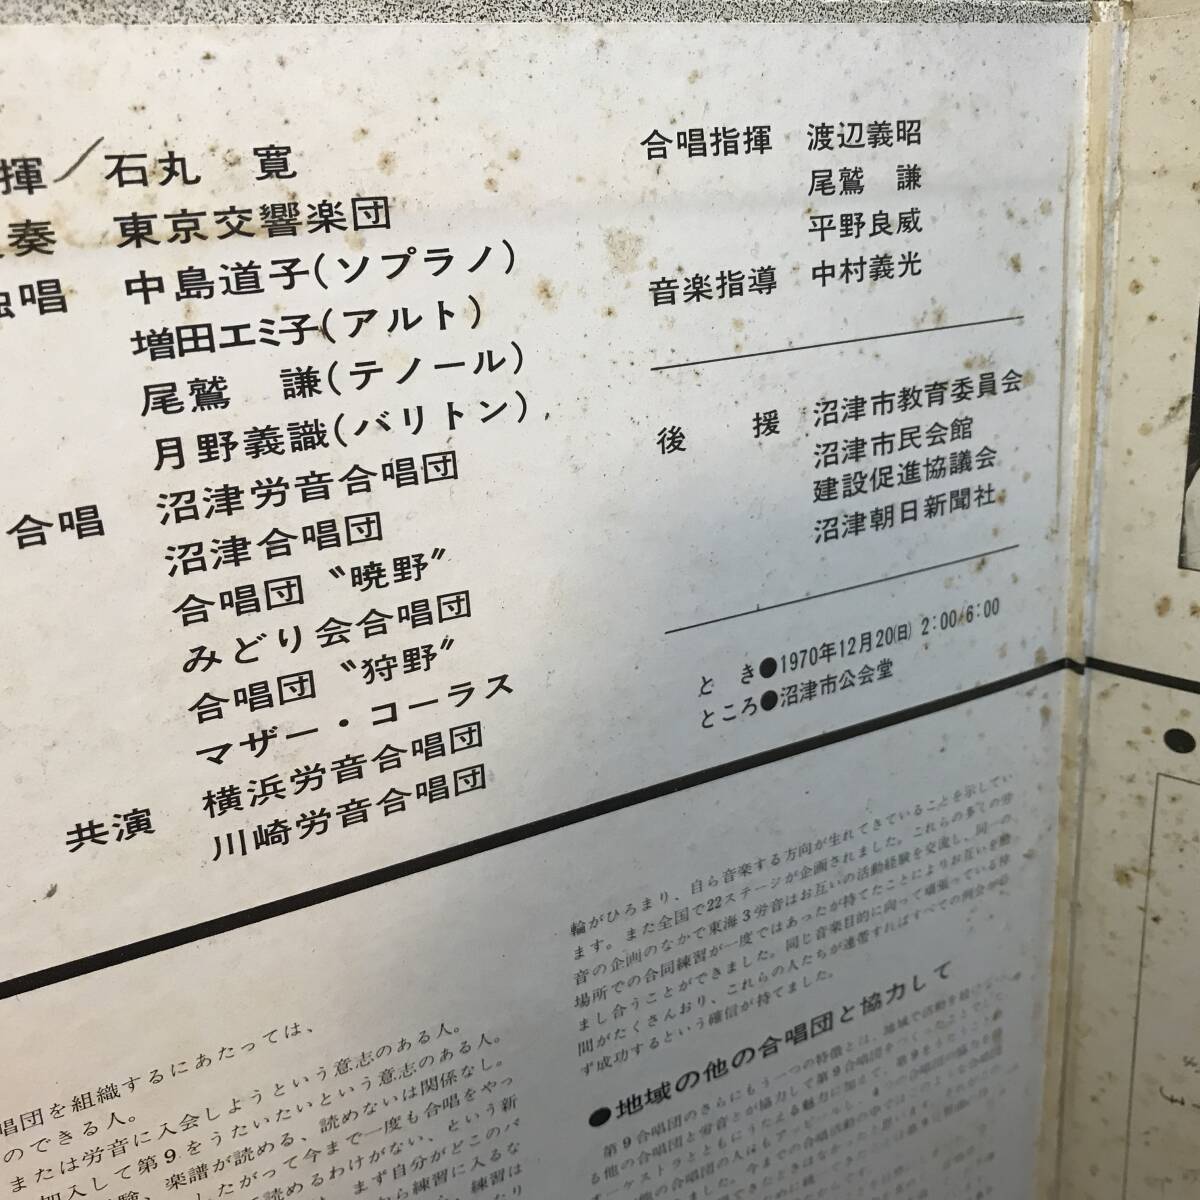 揮／石丸　寛
奏　東京交響楽団
唱　中島道子(ソプラノ)
増田エミ子(アルト)
尾鷲　謙(テノール)
月野義識(バリトン)
合唱　沼津労音合唱団
沼津合唱団
合唱団〝暁野〟
みどり会合唱団
合唱団〝狩野〟
マザー・コーラス
共演　横浜労音合唱団
川崎労音合唱団
合唱指揮　渡辺義昭
尾鷲　謙
平野良威
音楽指導　中村義光
後　援　沼津市教育委員会
沼津市民会館
建設促進協議会
沼津朝日新聞社
と　き●1970年12月20(日) 2:00/6:00
ところ●沼津市公会堂
唱団を組織するにあたっては、
のできる人。
または労音に入会しようという意志のある人。
加入して第９をうたいたいという意志のある人。
験、楽譜が読める、読めないは関係なし。
したがって今まで一度も合唱をやっ
読めるわけがない、という新
まず自分がどこのパ
から練習に入るな
練習は
輪がひろまり、自ら音楽する方向が生れてきていることを示してい
ます。また全国で22ステージが企画されました。これらの多くの労
音の企画のなかで東海３労音はお互いの活動経験を交流し、同一の
場所での合同練習が一度ではあったが持てたことによりお互いを励
まし合うことができました。同じ音楽目的に向って頑張っている仲
間がたくさんおり、これらの人たちが連帯すればすべての例会が必
ず成功するという確信が持てました。
●地域の他の合唱団と協力して
第９合唱団のさらにもう一つの特徴とは、地域で活動を続けてい
る他の合唱団と労音とが協力して第９合唱団をつくったことでした。